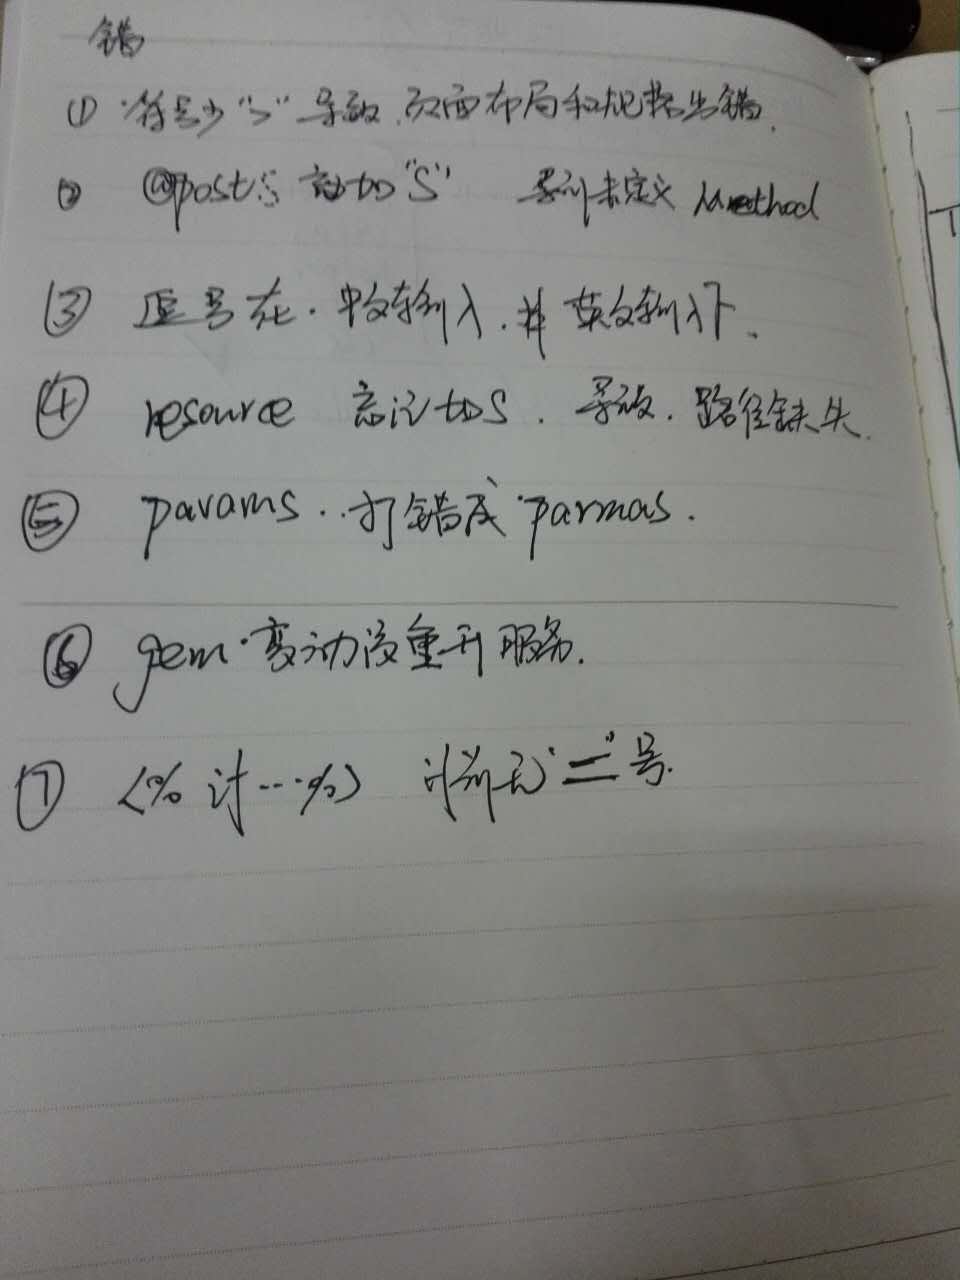 错
① 符号少">" 导致.页面布局和规格出错.
② @post's 忘加"S" 导制未定义 Method
③ 逗号在.中文输入.非英文输入下.
④ resource 忘记加S. 导致.路径缺失.
⑤ params..打错成 parmas.
⑥ gem.变动没重开服务.
⑦ <% ... %> "="号.